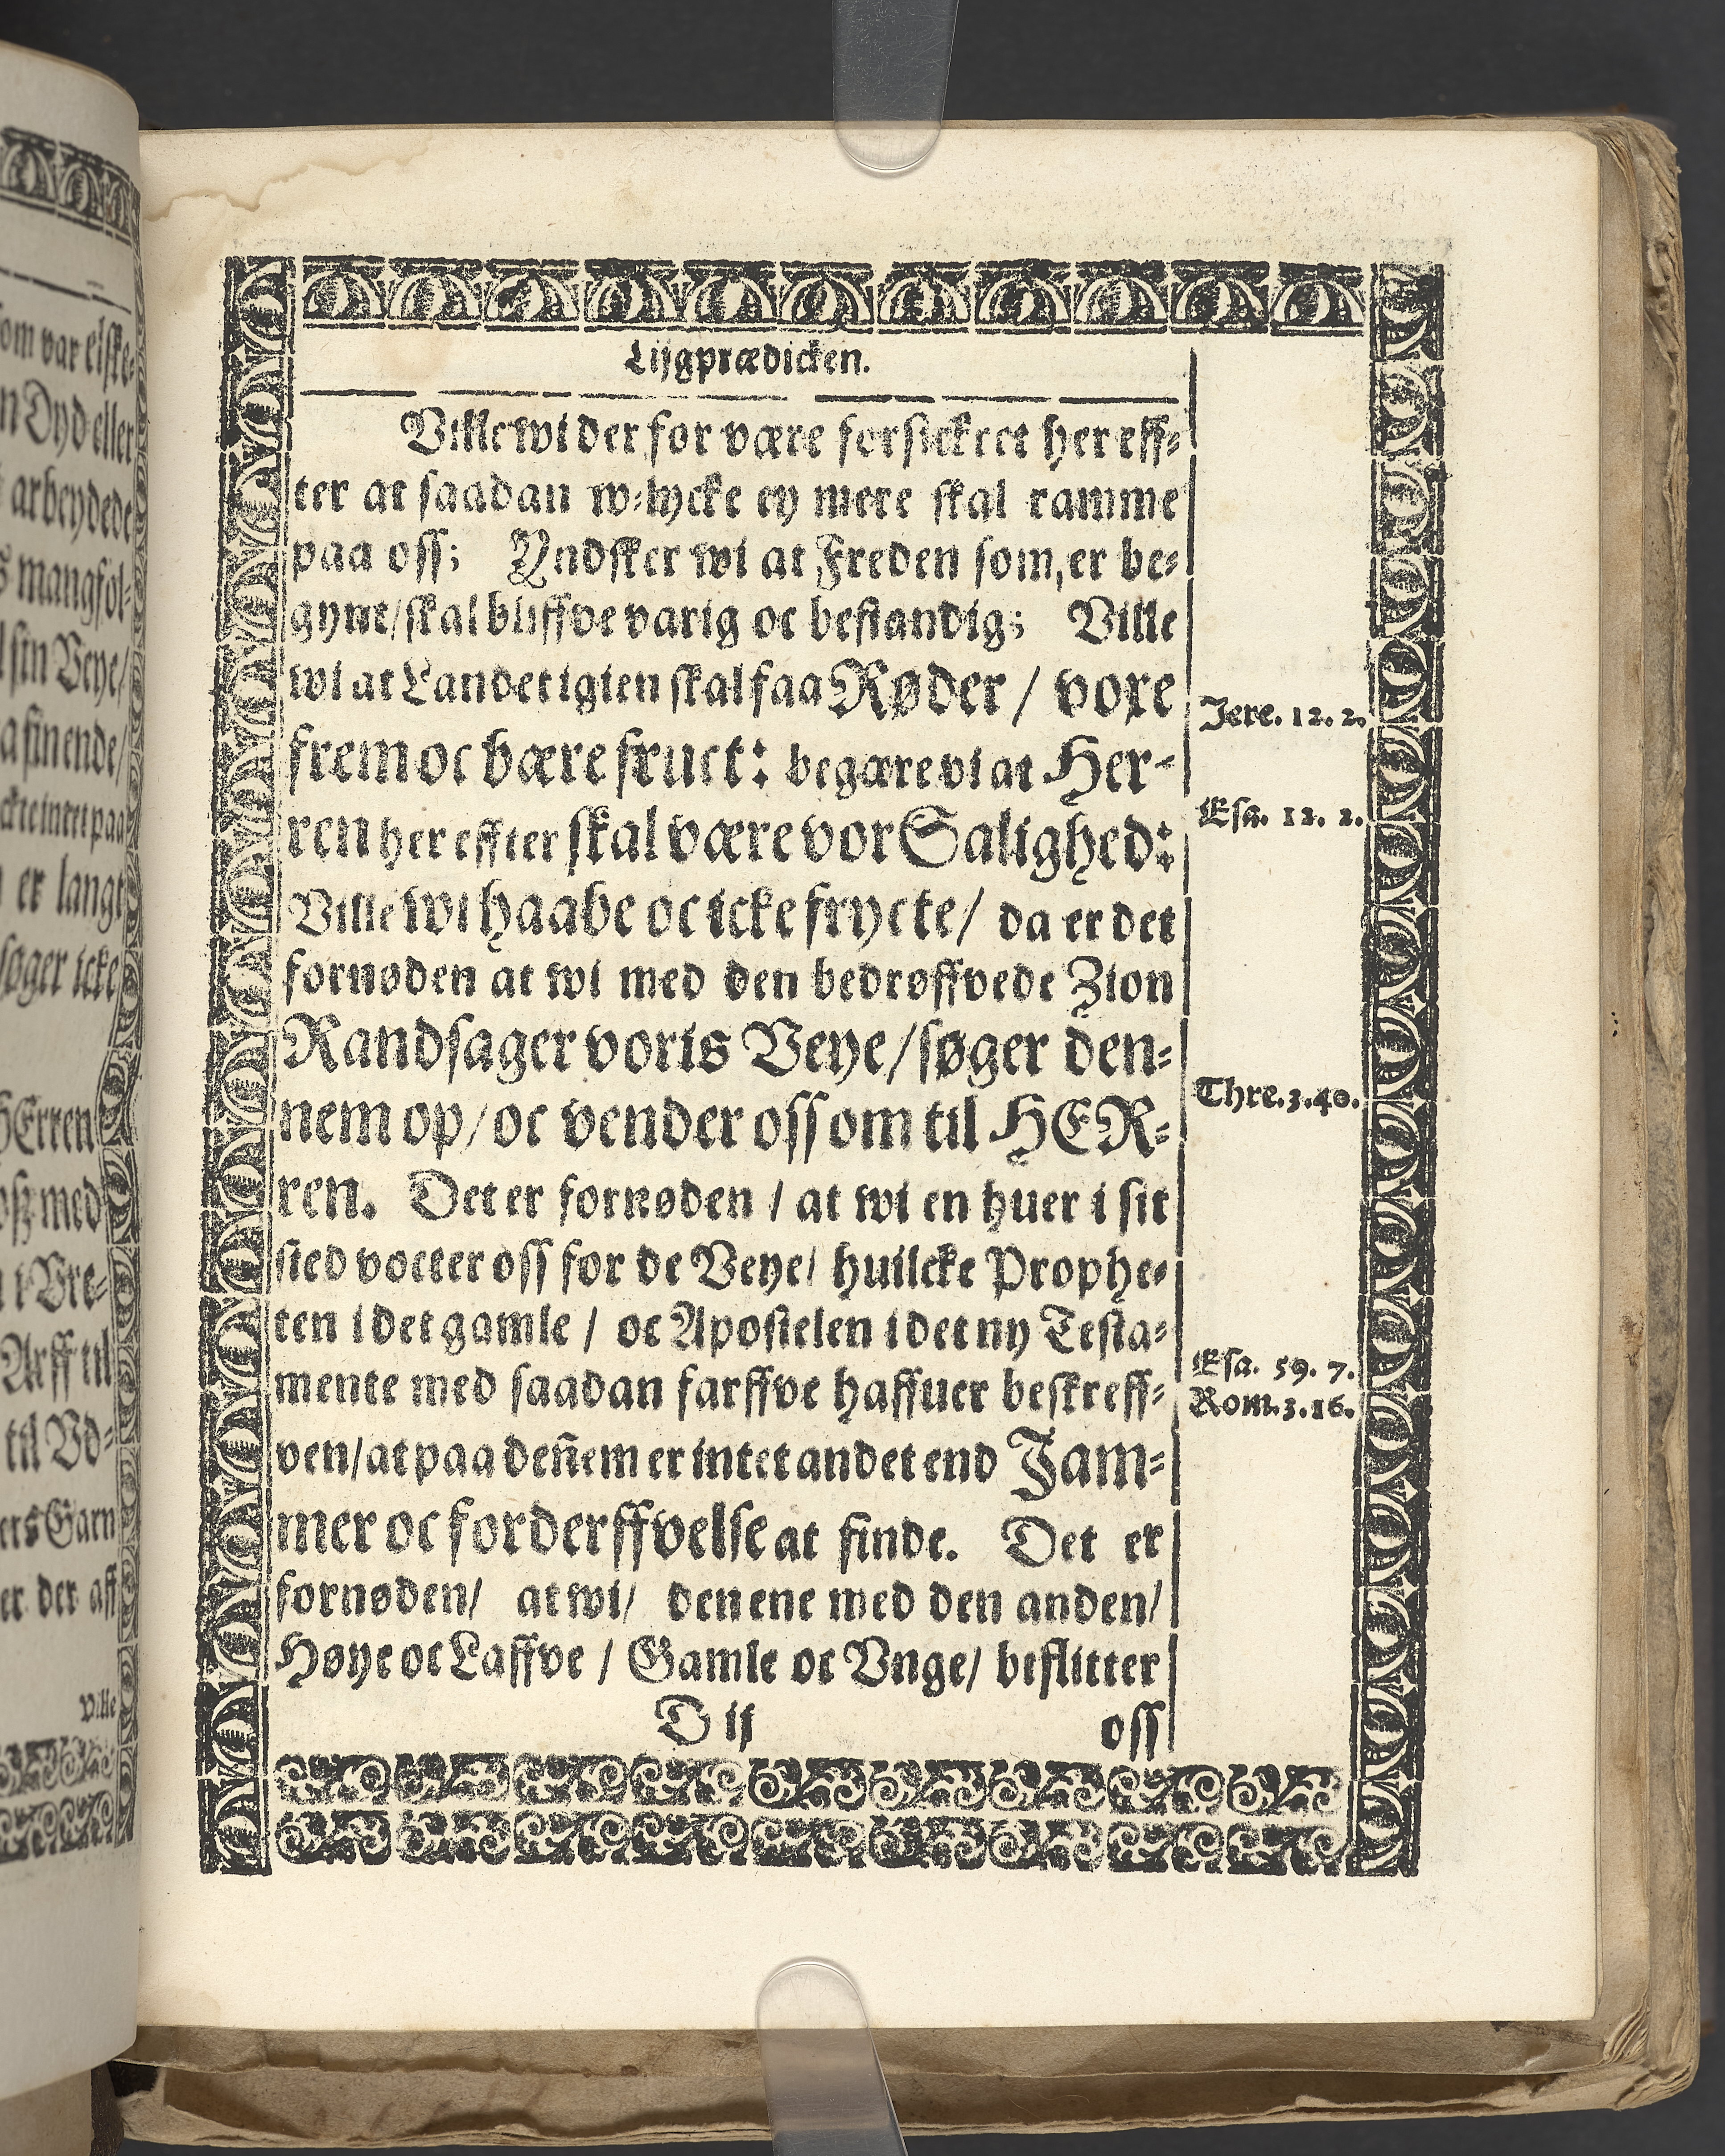 Lijgprædicken.
Ville wi der for være forsickret her eff⸗
ter at saadan w⸗lycke ey mere skal ramme
paa oss; Yndsker wi at Freden som, er be⸗
gynt/ skal bliffve varig oc bestandig; Ville
wi at Landet igien skal faa Røder / voxe
frem oc bære fruct: begære vi at Her⸗
ren her effter skal være vor Salighed:
Ville wi haabe oc icke frycte/ da er det
fornøden at wi med den bedrøffvede Zion
Randsager voris Veye/ søger den⸗
nem op/ oc vender oss om til HER⸗
ren. Det er fornøden / at wi en huer i sit
sted vocter oss for de Veye/ huilcke Prophe⸗
ten i det gamle / oc Apostelen i det ny Testa⸗
mente med saadan farffve haffuer beskreff⸗
ven/ at paa deñem er intet andet end Jam⸗
mer oc forderffvelse at finde. Det er
fornøden/ at wi/ den ene med den anden/
Høye oc Laffve / Gamle oc Vnge/ beflitter
D ij oss
Jere. 12. 2.
Esa. 12. 2.
Thre. 3. 40.
Esa. 59. 7.
Rom. 3. 16.
om var elske⸗
n Dyd eller
arbeydede
s mangfol⸗
sin Veye/
a sin ende/
er langt
søger icke
HErren
oss med
Arff til
til Vd⸗
ers Garn
er der aff
Ville